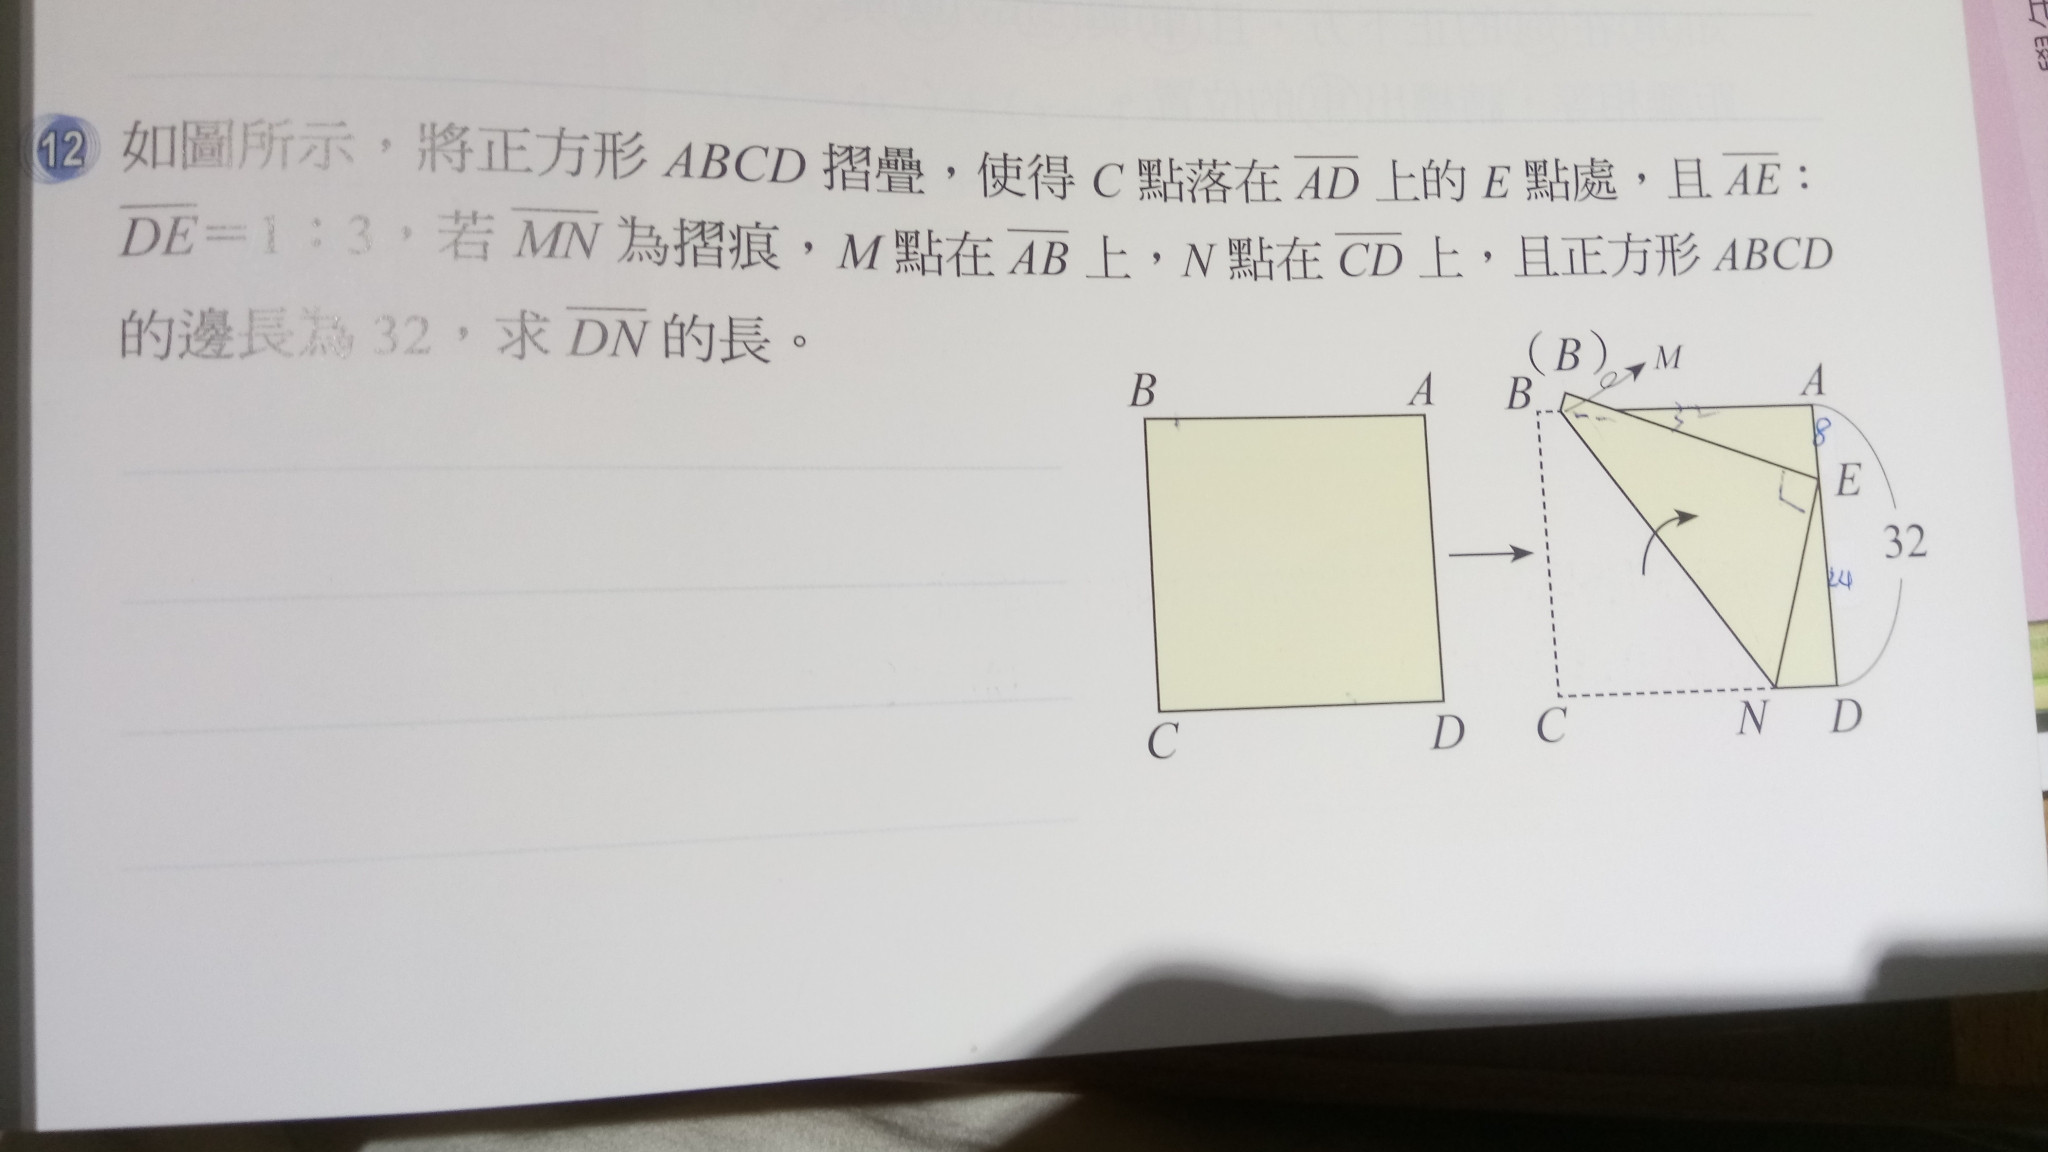 12 如圖所示，將正方形 ABCD 摺疊，使得 C 點落在 AD 上的 E 點處，且 AE：
DE＝1：3，若 MN 為摺痕，M 點在 AB 上，N 點在 CD 上，且正方形 ABCD
的邊長為 32，求 DN 的長。
B A
C D
(B) M
B A
8
E
32
24
C N D